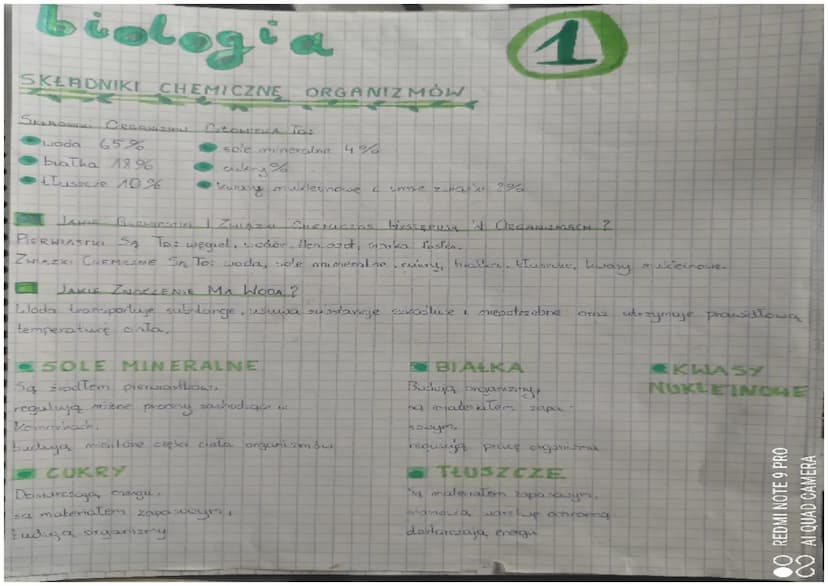 biologia
1
SKŁADNIKI CHEMICZNE ORGANIZMÓW
Składniki Organizmu Człowieka To:
woda 65%
sole mineralne 4%
białka 18%
cukry %
tłuszcze 10%
kwasy nukleinowe i inne związki 2%
Jakie Pierwiastki i Związki Chemiczne Występują W Organizmach?
Pierwiastki Są To: węgiel, wodór, tlen, azot, siarka, fosfor.
Związki Chemiczne Są To: woda, sole mineralne, cukry, białka, tłuszcze, kwasy nukleinowe.
Jakie Znaczenie Ma Woda?
Woda transportuje substancje, usuwa substancje szkodliwe i niepotrzebne oraz utrzymuje prawidłową
temperaturę ciała.
SOLE MINERALNE
Są źródłem pierwiastków,
regulują różne procesy zachodzące w
komórkach,
budują niektóre części ciała organizmów
BIAŁKA
Budują organizmy,
są materiałem zapa-
sowym,
regulują pracę organizmu
KWASY
NUKLEINOWE
CUKRY
Dostarczają energii,
są materiałem zapasowym,
budują organizmy
TŁUSZCZE
Są materiałem zapasowym,
stanowią warstwę ochronną,
dostarczają energii
REDMI NOTE 9 PRO
AI QUAD CAMERA